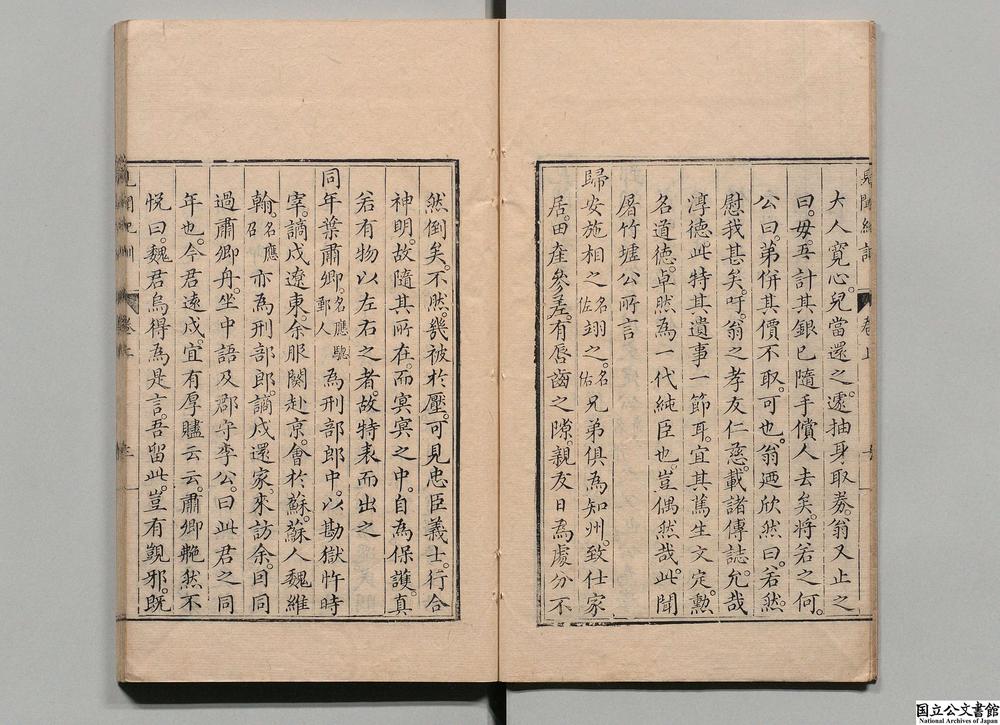 大人寬心。兒當還之。遽抽身取券。翁又止之
曰。毋。吾計其銀已隨手償人去矣。將若之何。
公曰。弟併其價不取。可也。翁廼欣然曰。若然。
慰我甚矣。吁。翁之孝友仁慈。載諸傳誌。允哉
淳德。此特其遺事一節耳。宜其篤生文定。勲
名道德。卓然為一代純臣也。豈偶然哉。此聞
屠竹墟公所言
歸安施相之名佐翊之。名佑兄弟俱為知州。致仕家
居。田產參差。有唇齒之隙。親友日為處分不
然倒矣。不然。幾被於壓。可見忠臣義士。行合
神明。故隨其所在。而冥冥之中。自為保護。真
若有物以左右之者。故特表而出之
同年葉肅卿。名應驄鄞人為刑部郎中。以勘獄忤時
宰。謫戍遼東。余服闋赴京。會於蘇。蘇人魏維
翰。名應召亦為刑部郎。謫戍還家。來訪余。因同
過肅卿舟。坐中語及郡守李公。曰此君之同
年也。今君遠戍。宜有厚贐云云。肅卿艴然不
悅曰。魏君烏得為是言。吾留此。豈有覬邪。既
見聞紀訓
卷上
国立公文書館
National Archives of Japan